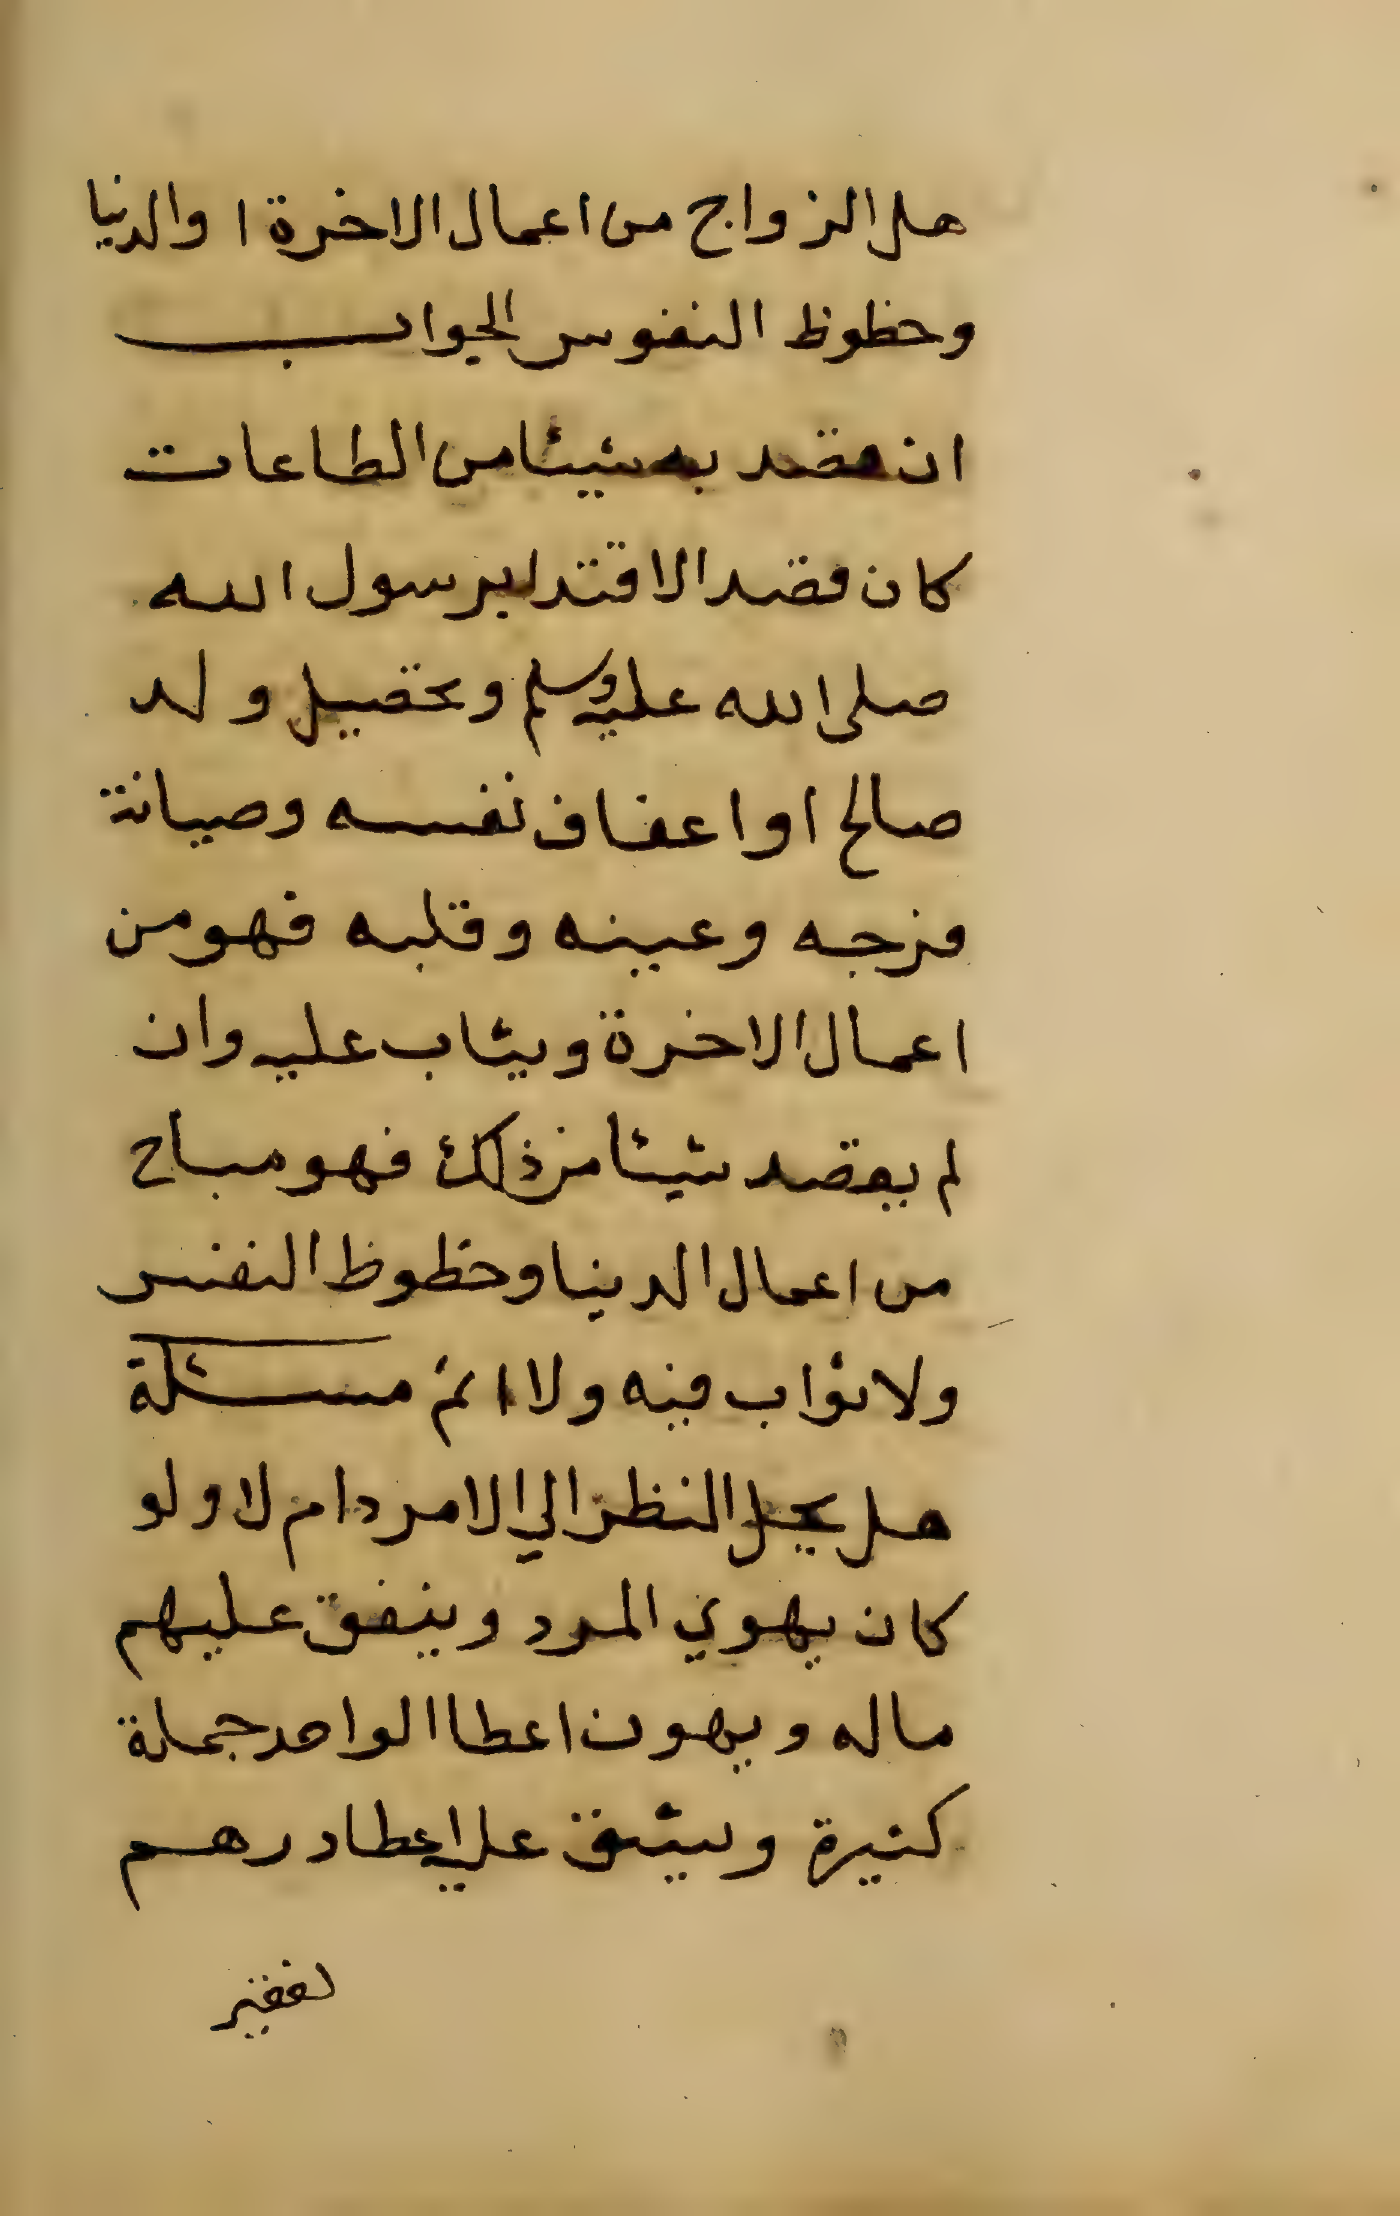 هل الزواج من اعمال الاخرة ا والدنيا
وحظوظ النفوس الجواب
ان قصد به شيئا من الطاعات
كان قصد الاقتدا برسول الله
صلى الله عليه وسلم وتحصيل ولد
صالح او اعفاف نفسه وصيانة
فرجه وعينه وقلبه فهو من
اعمال الاخرة ويثاب عليه وان
لم يقصد شيئا من ذلك فهو مباح
من اعمال الدنيا وحظوظ النفس
ولا ثواب فيه ولا اثم مسئلة
هل يحل النظر الي الامرد ام لا ولو
كان يهوي المرد وينفق عليهم
ماله ويهون اعطا الواحد جملة
كثيرة ويشق عليه اعطا درهم
لفقير